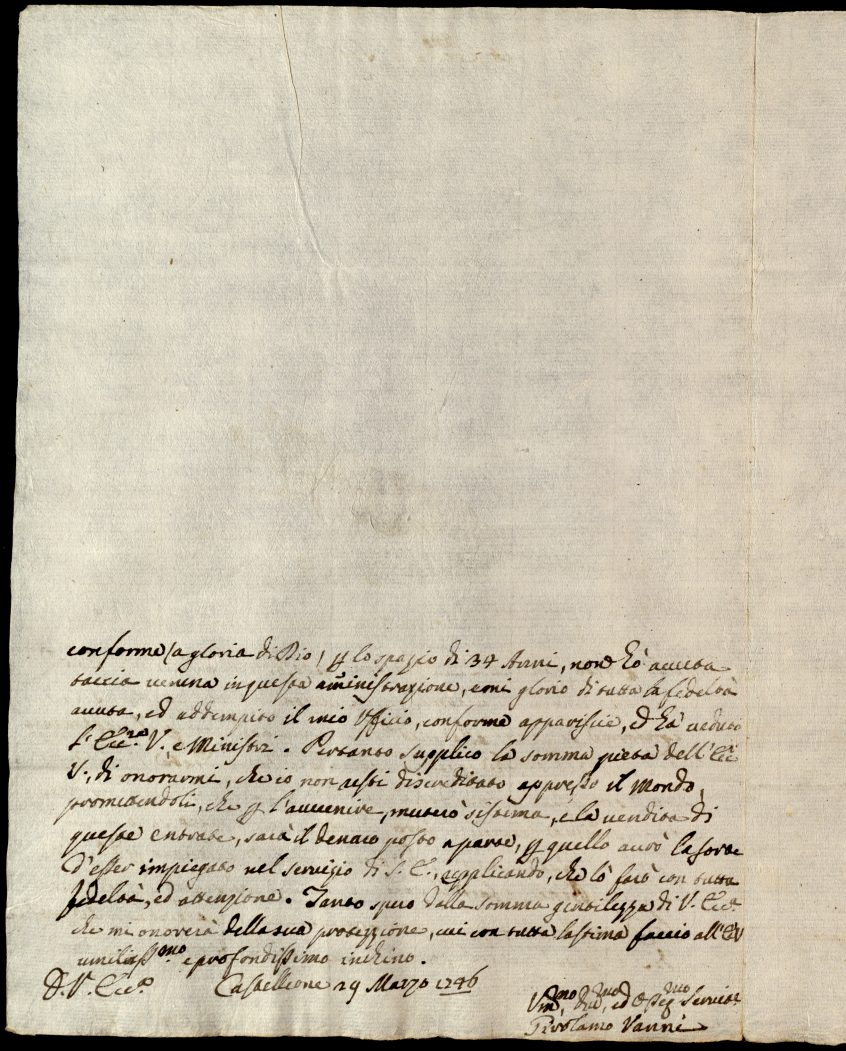 conforme (a gloria di Dio) p lo spazio di 34 Anni, non hò avuta
taccia veruna in questa aministrazione, e mi glorio di tutta la fedeltà
avuta, ed addempito il mio Vfficio, conforme apparisce, ed hà veduto
l'Ecc.za V. e Ministri. Pertanto supplico la somma pietà dell'Ecc.
V., di onorarmi, che io non resti discreditato appresso il Mondo,
promettendoli, che p l'avvenire, muterò sistema, e la vendita di
queste entrate, sarà il denaro posto a parte, p quello avrò la sorte
d'esser impiegato nel servizio di S. E., applicando, che lò farò con tutta
fedeltà, ed attenzione. Tanto spero dalla somma gentilezza di V. Ecc.
che mi onorerà della sua protezzione, cui con tutta la stima faccio all'EV
umiliss.mo e profondissimo inchino.
D. V. Ecc.a Castellione 29 Marzo 1746
Um.mo, ed Servit.
Girolamo Vanni